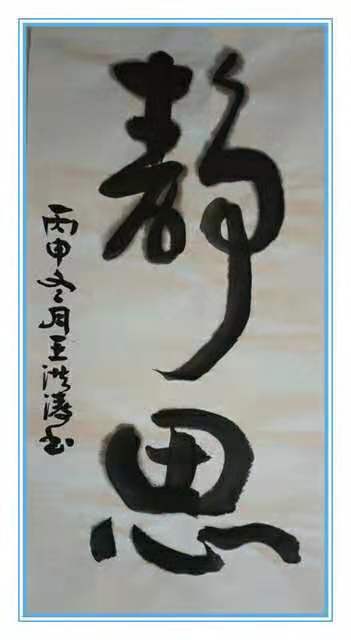 静思
丙申冬月王洪涛书